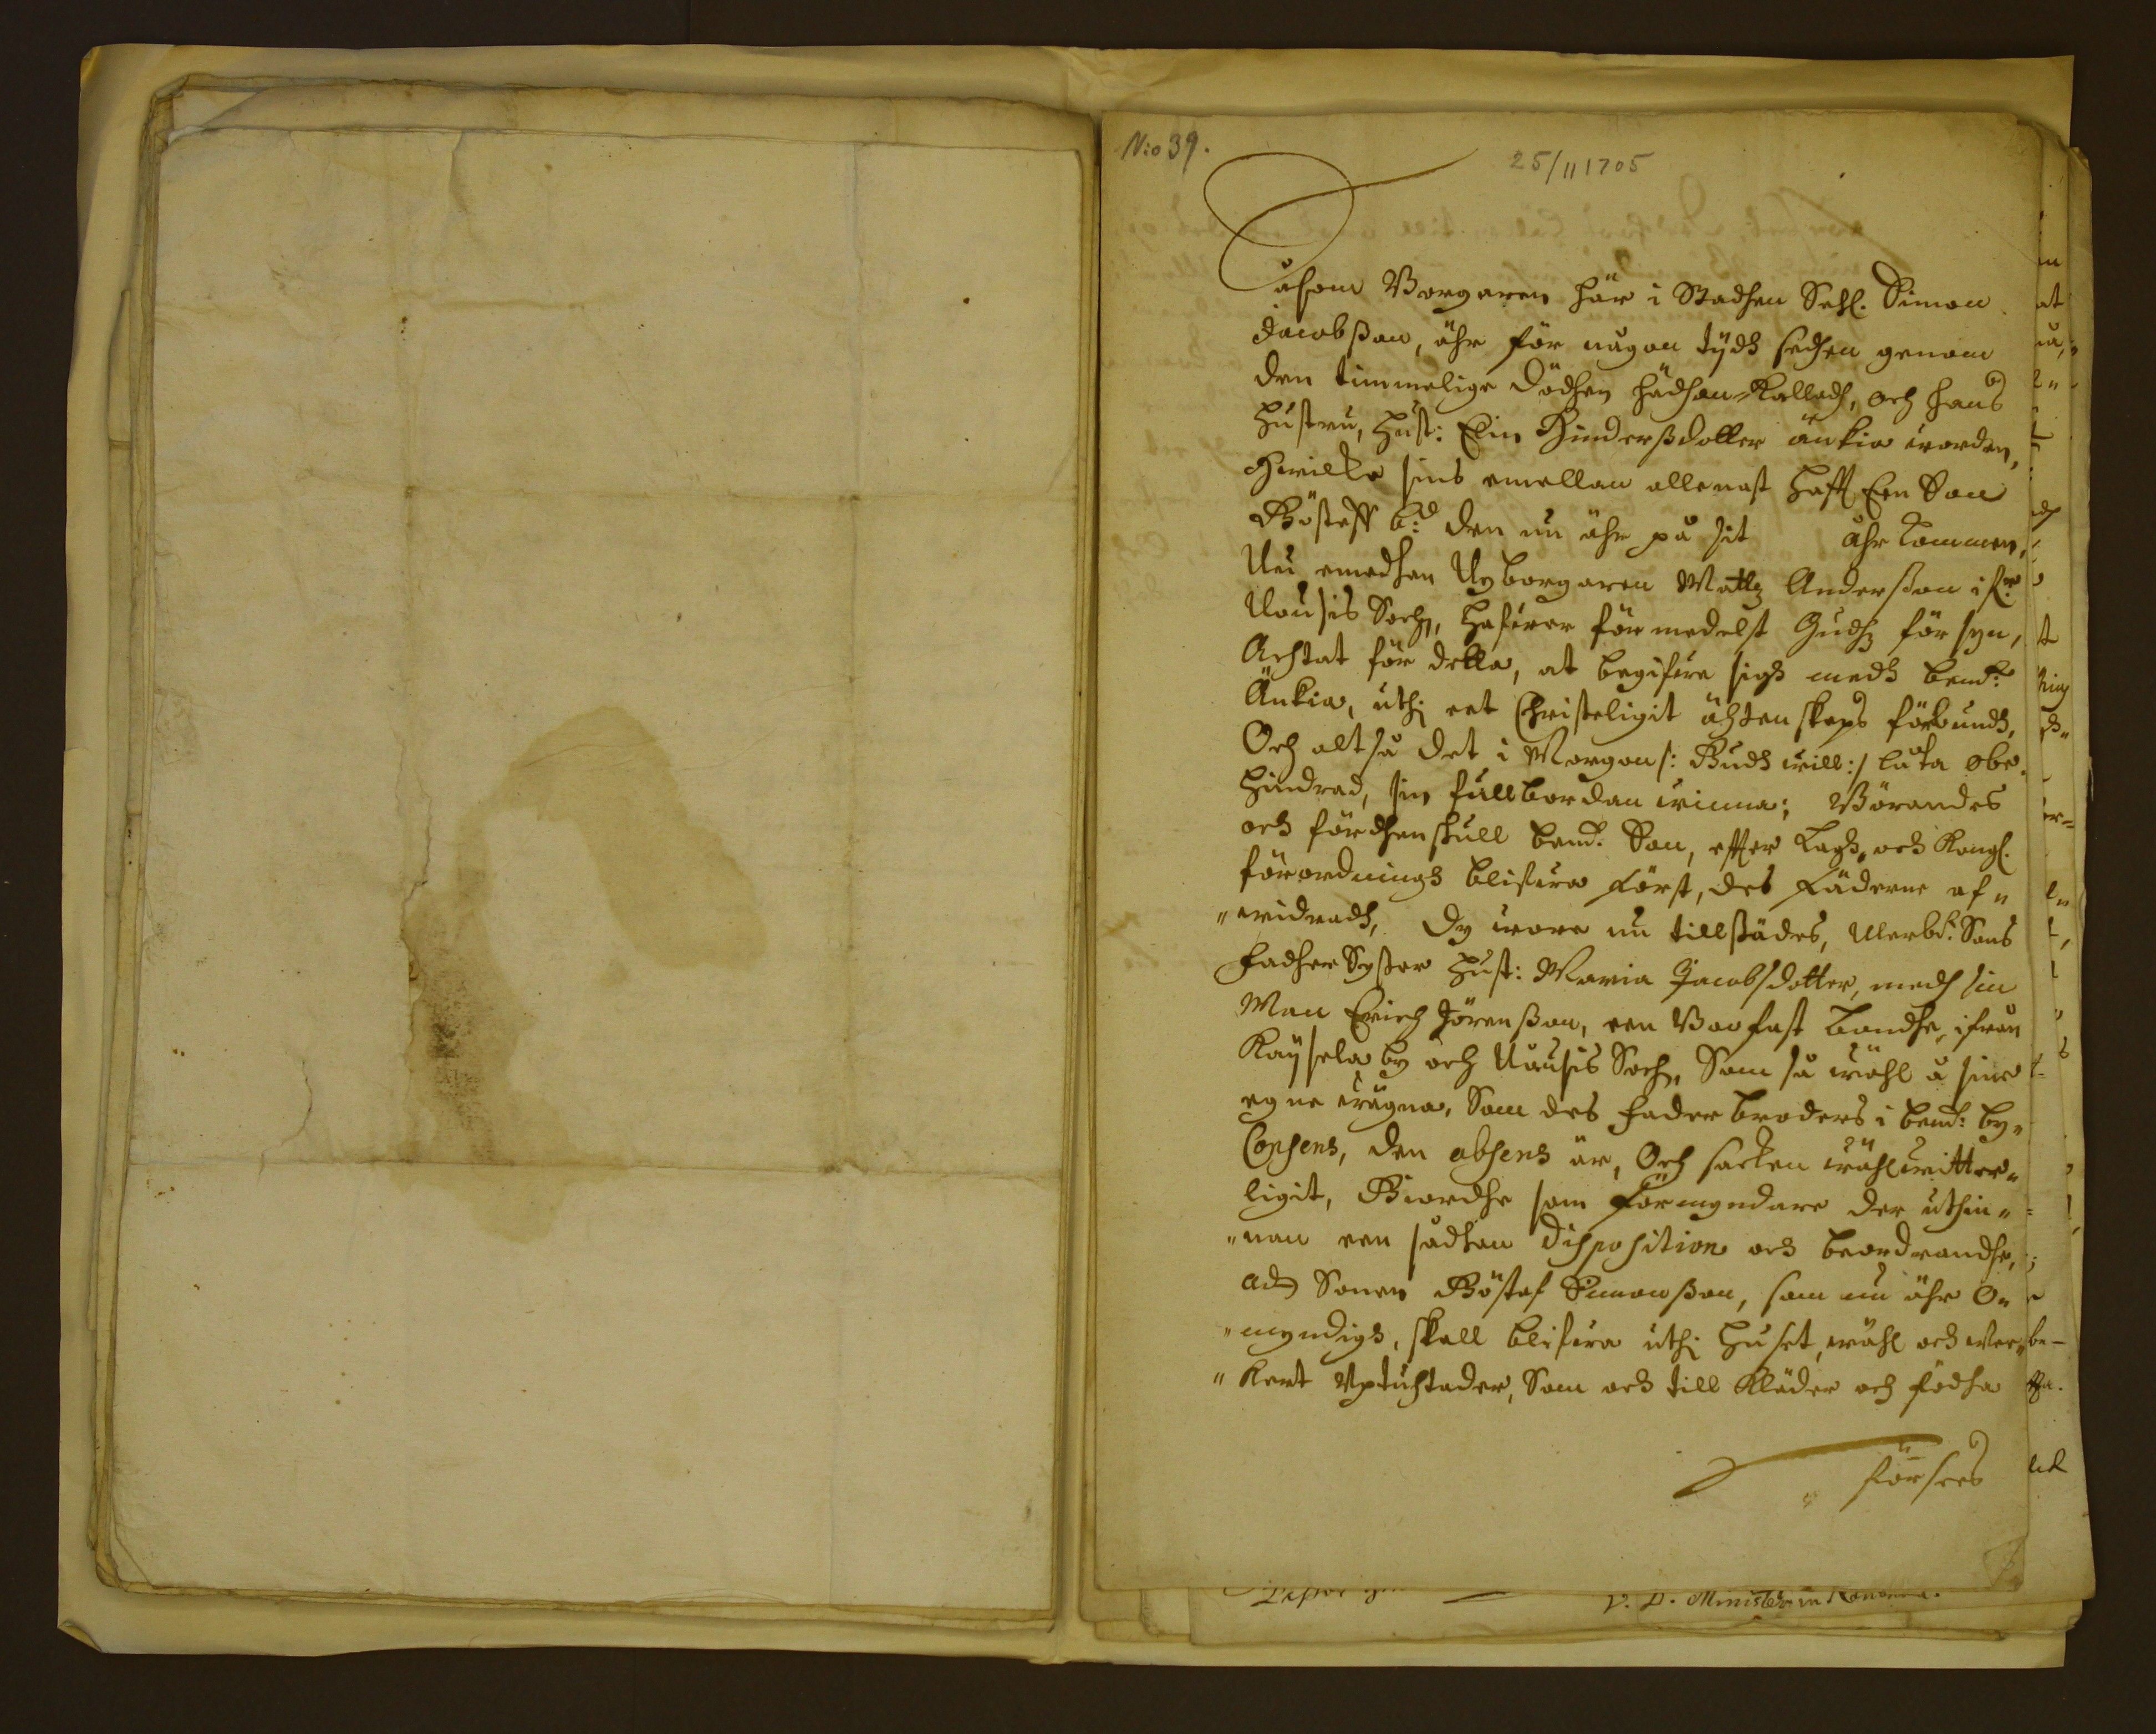 N:o 39.
25/11 1705
Såsom Borgaren här i Stadhen Sehl. Simon
Jacobßon, ähr för någon tijdh sedhen genom
den timmelige dödhen hädhan-kalladh, och hans
hustru, hust: Elin Hindersdotter änkia worden,
Hwilka sins emellan allenast hafft Een Son
Göstaff b:d den nu ähr på sit åhr kommen,
Nu emedhan Nyborgaren Matts Anderßon ifr.
Nousis Sochn, hafwer förmedelst Gudz försyn,
Achtat för detta, at begifwa sigh medh bem:te
Änkia, uthi eet Christeligit ächtenskaps förbundh,
Och altså det i Morgon /: Gudh will :/ låta obe-
hindrad, sin fullbordan winna; Börandes
och fördhenskull bem:te Son, efter Lagh, och Kongl.
förordningh blifwa först, des Fäderne af„
„widradh, Dy wore nu tillstädes, Merbd: Sons
FadherSyster hust: Maria Jacobsdotter, medh sin
Man Erich Jörenßon, een Boofast bondhe, ifrån
Kaijsela by och Nousis Sochn, Som så wähl å sine
egne wägna, Som des Faderbroders i bem:te by„
Consens, den absens är, Och saken wähl witter„
ligit, Giordhe som Förmyndare der uthin„
„nan een sådhan Disposition och beordrandhe,
ad Sonen Göstaf Simonßon, som nu ähr O„
„myndigh, skall blifwa uthi huset, wähl och wac„
„kert Vptuchtader, Som och till Kläder och födha
försees
V. D. Minister in